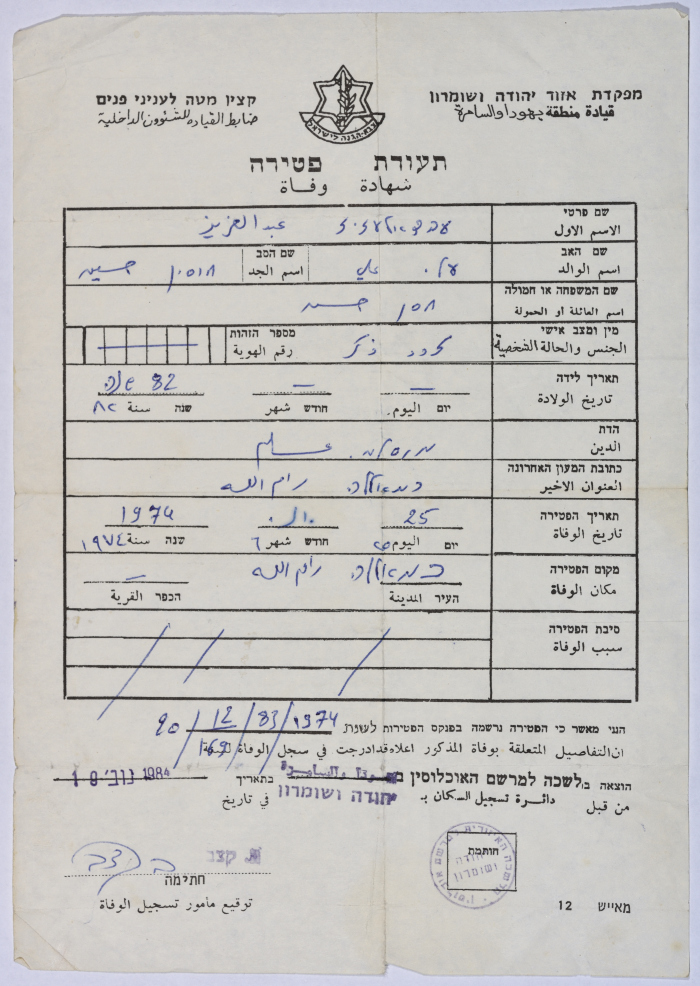 מפקדת אזור יהודה ושומרון
قيادة منطقة يهودا والسامرة
קצין מטה לעניני פנים
ضابط القيادة للشؤون الداخلية
צבא הגנה לישראל
תעודת פטירה
شهادة وفاة
שם פרטי
الاسم الاول
עבד אלעזיז عبد العزيز
שם האב
اسم الوالد
עלי علي
שם הסב
اسم الجد
חוסין حسين
שם המשפחה או חמולה
اسم العائلة او الحمولة
חסן حسن
מין ומצב אישי
الجنس والحالة الشخصية
זכר ذكر
מספר הזהות
رقم الهوية
תאריך לידה
تاريخ الولادة
יום اليوم
חודש شهر
82 שנה
שנה سنة ٨٢
הדת
الدين
מוסלמי
כתובת המעון האחרונה
العنوان الاخير
רמאללה رام الله
תאריך הפטירה
تاريخ الوفاة
25
יום اليوم
חודש شهر ٦
1974
שנה سنة ١٩٧٤
מקום הפטירה
مكان الوفاة
רמאללה رام الله
העיר المدينة
הכפר القرية
סיבת הפטירה
سبب الوفاة
הנני מאשר כי הפטירה נרשמה בפנקס הפטירות לשנת 1974/83/12
ان التفاصيل المتعلقة بوفاة المذكور اعلاه قد ادرجت في سجل الوفاة لسنة
הוצאה ב לשכה למרשם האוכלוסין ב
יהודה ושומרון
בתאריך 10 נוב' 1984
من قبل دائرة تسجيل السكان بـ
في تاريخ
חותמת
יהודה
ושומרון
חתימה
توقيع مأمور تسجيل الوفاة
מאייש 12